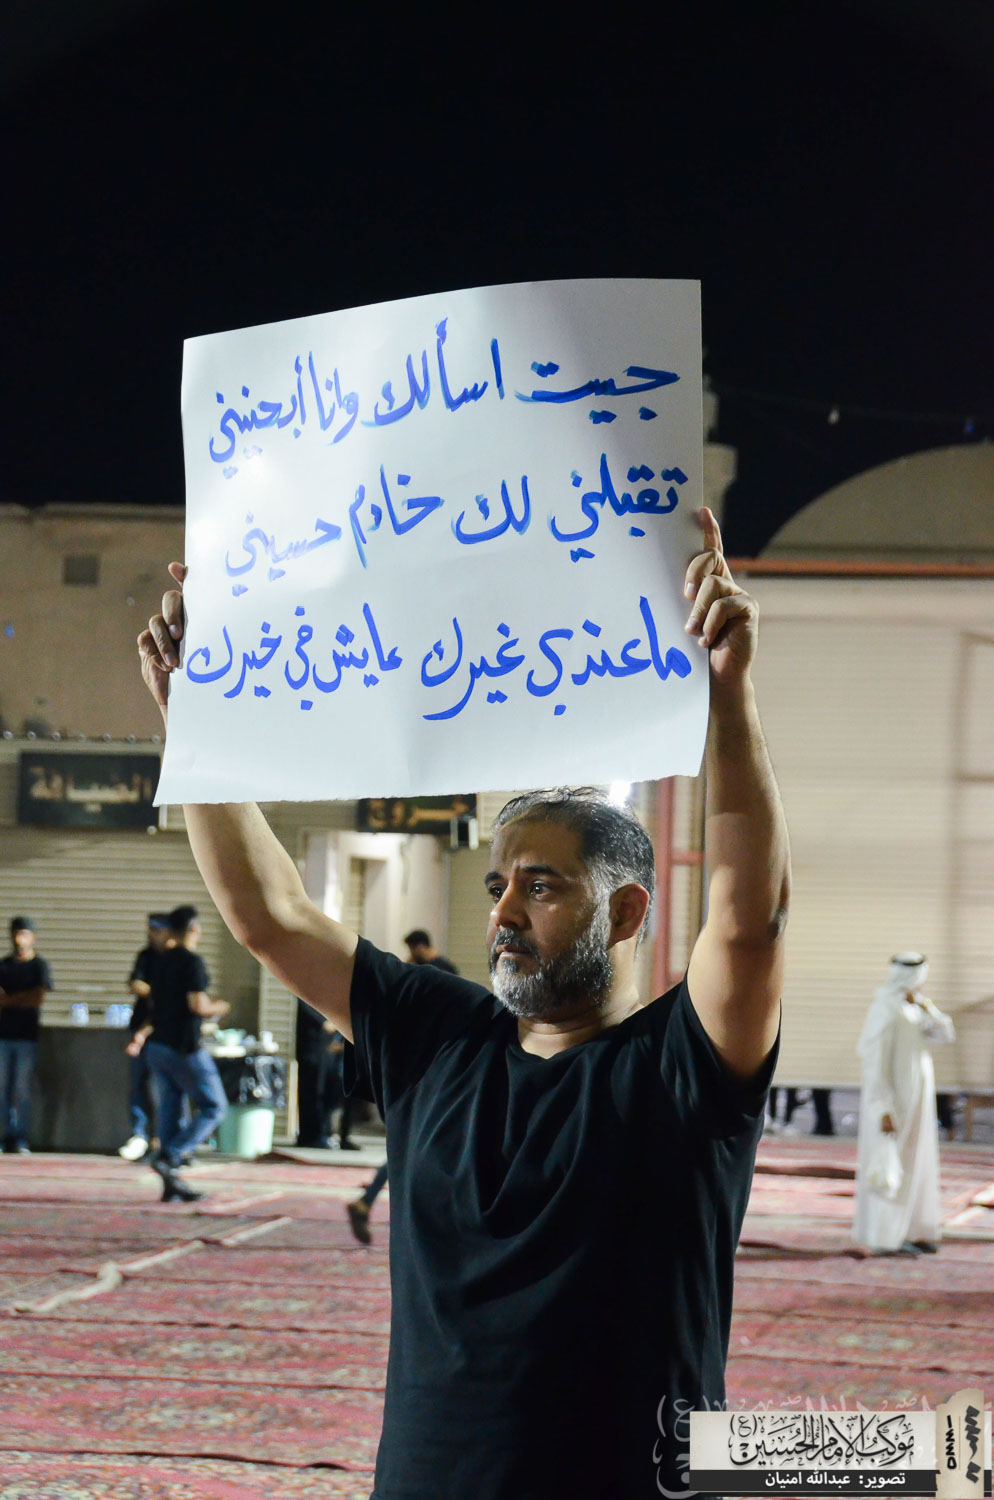 جييت اسألك وانا أبحنيني
تقبلني لك خادم حسيني
ماعندي غيرك عايش في خيرك
الضيافة
خروج
موكب الإمام الحسين (ع)
تصوير: عبدالله امنيان